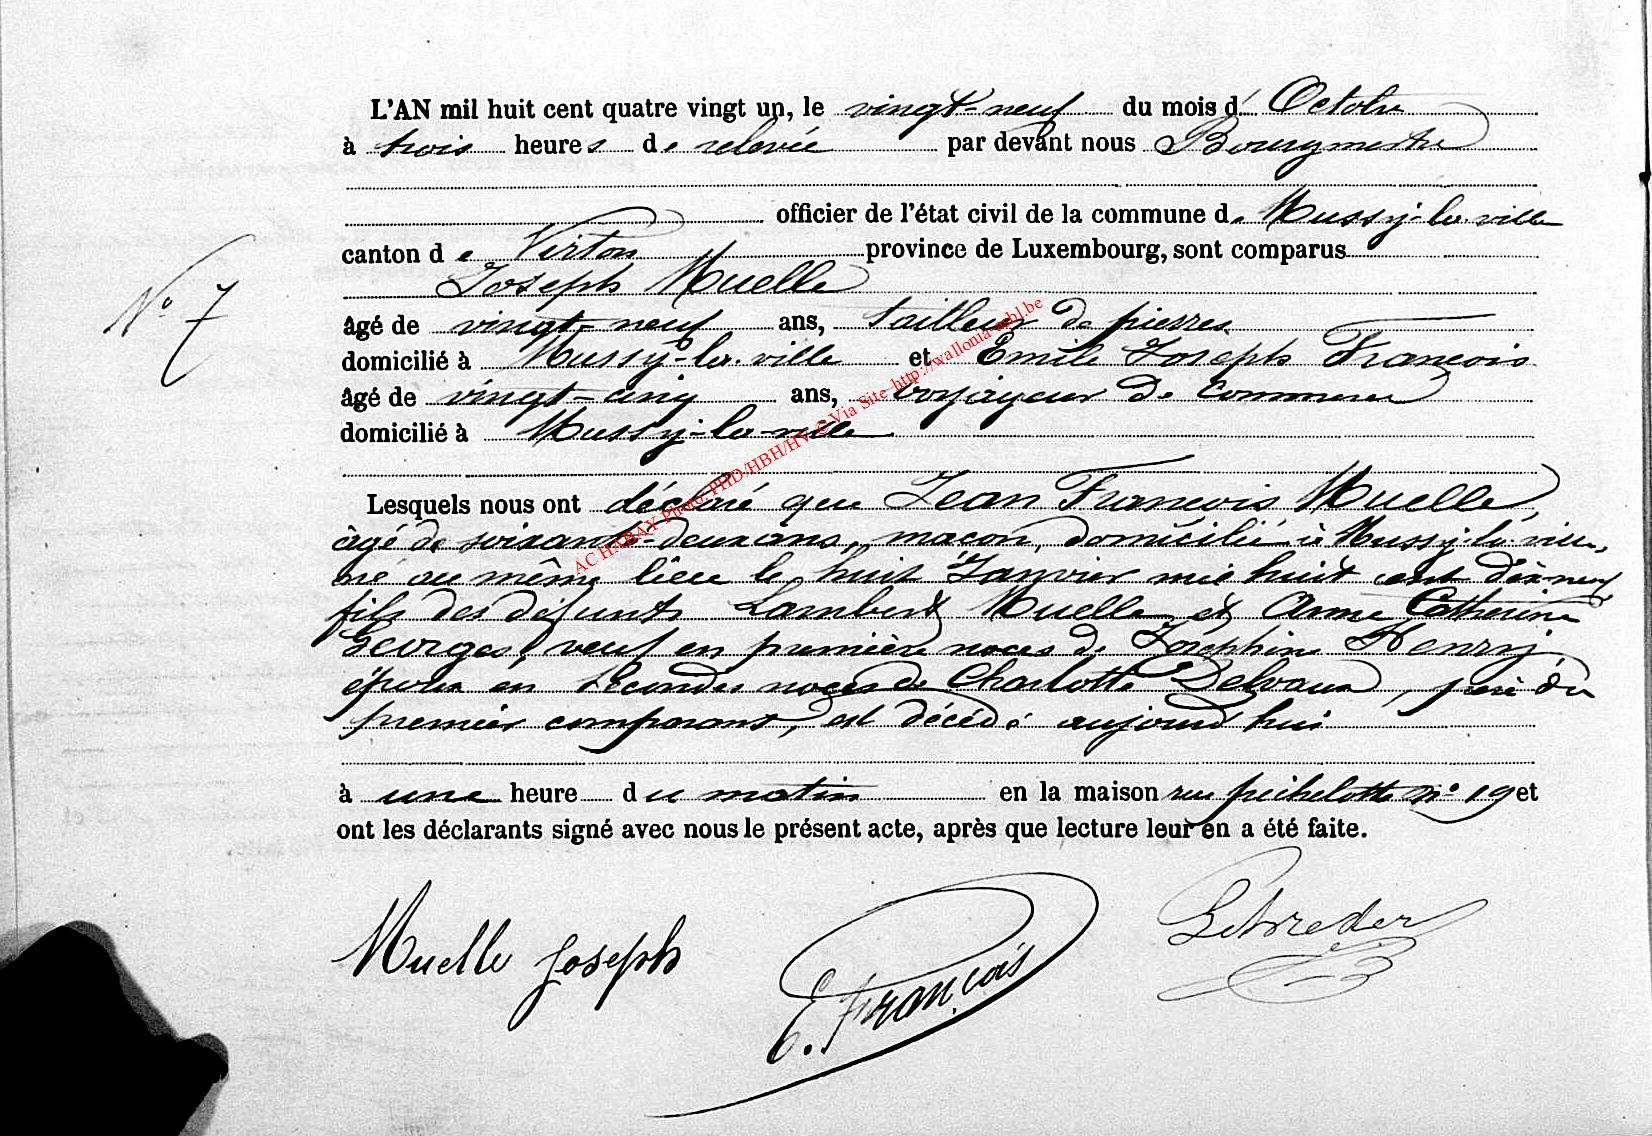 L'AN mil huit cent quatre vingt un, le vingt-neuf du mois d' Octobre
à trois heures de relevée par devant nous Bourgmestre
officier de l'état civil de la commune de Mussy-la-ville
canton de Virton province de Luxembourg, sont comparus
Joseph Muelle
N° 7
âgé de vingt-neuf ans, tailleur de pierres
domicilié à Mussy-la-ville et Emile Joseph François
âgé de vingt-cinq ans, voyageur de commerce
domicilié à Mussy-la-ville
Lesquels nous ont déclaré que Jean François Muelle,
âgé de soixante-deux ans, maçon, domicilié à Mussy-la-ville,
né au même lieu le huit Janvier mil huit cent dix-neuf
fils des défunts Lambert Muelle et Anne Catherine
Georges, veuf en première noces de Joséphine Henry
époux en secondes noces de Charlotte Delvaux, père du
premier comparant, est décédé aujourd'hui
à une heure du matin en la maison rue pichelotte n° 19 et
ont les déclarants signé avec nous le présent acte, après que lecture leur en a été faite.
Muelle Joseph E. François
AC HABAY Photo: PHD/HBH/HV © Via Site http://wallonia-asbl.be